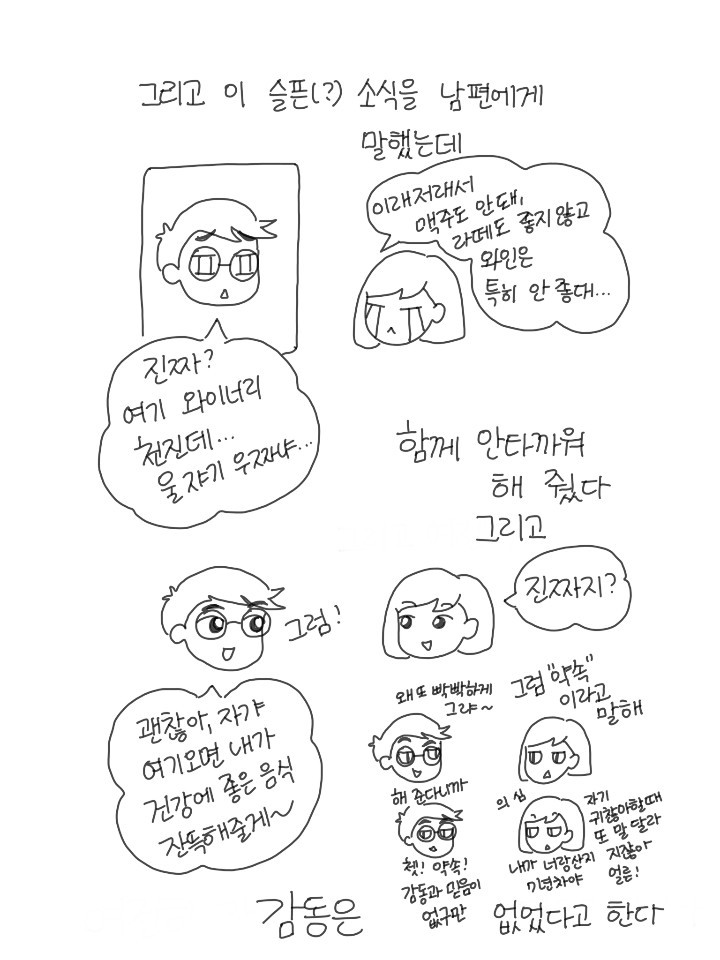 그리고 이 슬픈(?) 소식을 남편에게
말했는데
이래저래서
맥주도 안돼,
라떼도 좋지않고
와인은
특히 안 좋대...
진짜?
여기 와이너리
천진데...
울쟈기 우짜냐...
함께 안타까워
해 줬다
그리고
그럼!
진짜지?
괜찮아, 자갸
여기오면 내가
건강에 좋은 음식
잔뜩해줄게~
왜 또 빡빡하게
그랴~
그럼 "약속"
이라고
말해
해 준다니까
의심
자기
귀찮아할때
또 말 달라
지잖아
얼른!
내가 너랑산지
7년차야
쳇! 약속!
감동과 믿음이
없구만
감동은 없었다고 한다